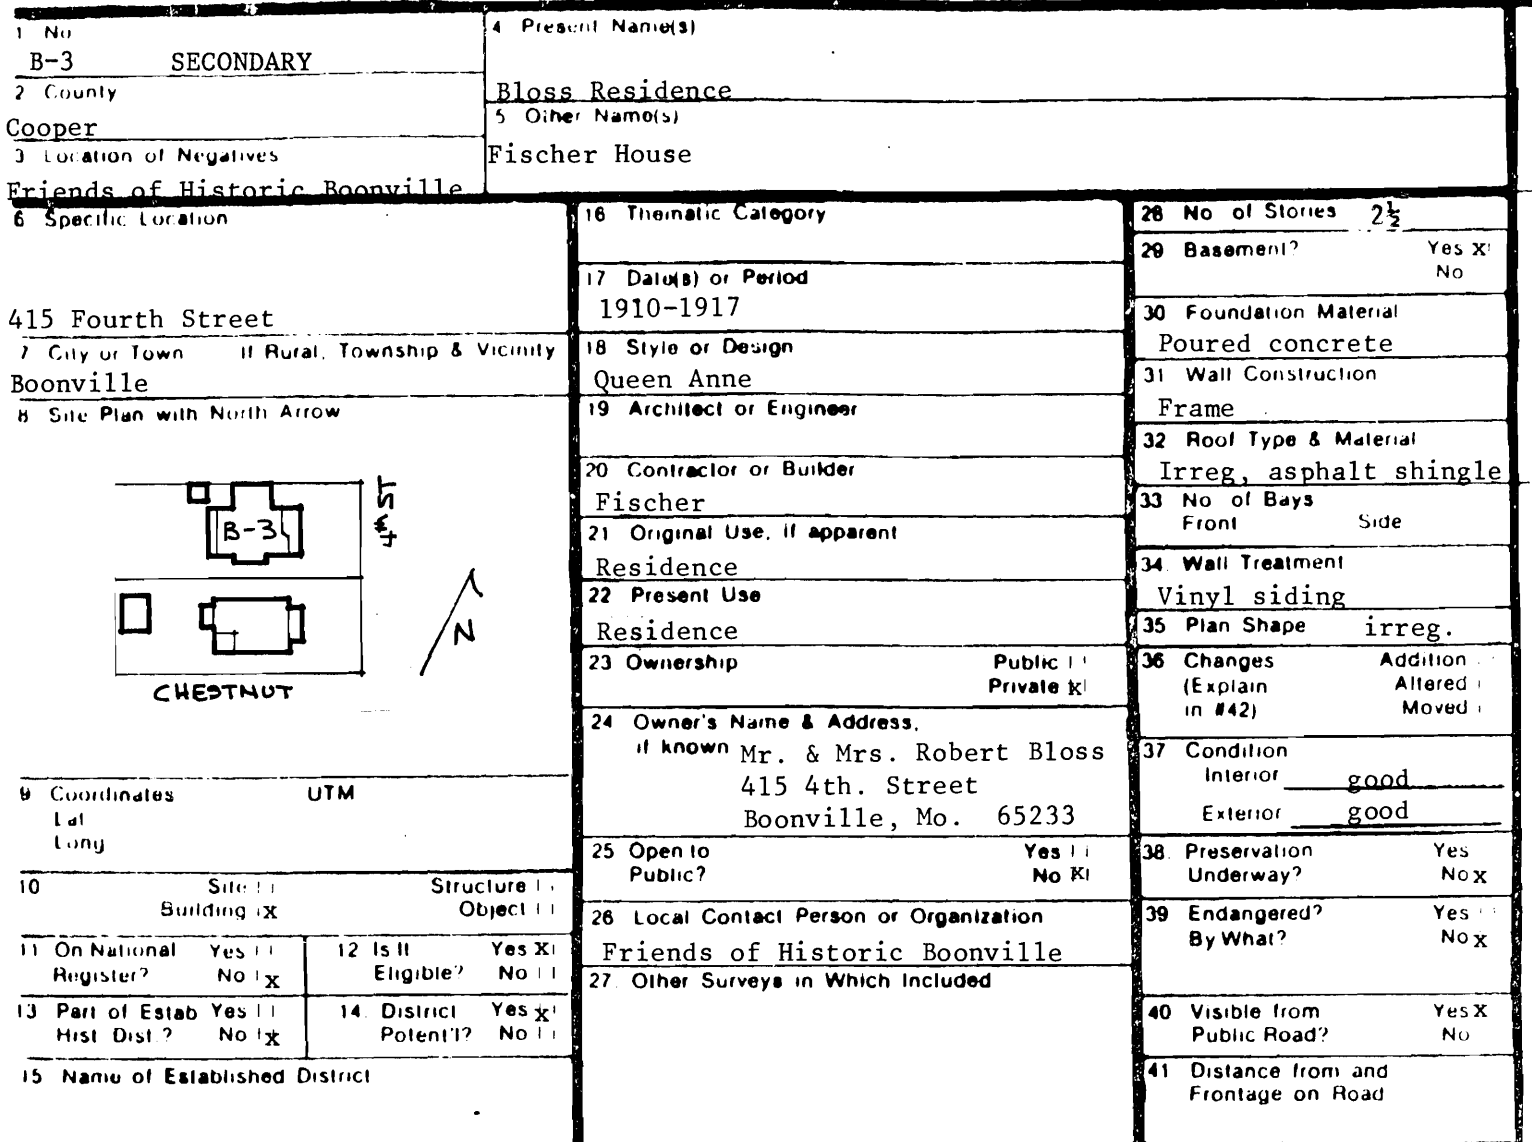 1 No
B-3 SECONDARY
2 County
Cooper
3 Location of Negatives
Friends of Historic Boonville
4 Present Name(s)
Bloss Residence
5 Other Name(s)
Fischer House
6 Specific Location
415 Fourth Street
7 City or Town If Rural, Township & Vicinity
Boonville
8 Site Plan with North Arrow
B-3
4th ST
N
CHESTNUT
9 Coordinates UTM
Lat
Long
10 Site Structure
Building x Object
11 On National Yes
Register? No x
12 Is It Yes X
Eligible? No
13 Part of Estab Yes
Hist Dist.? No x
14. District Yes x
Potent'l? No
15 Name of Established District
16 Thematic Category
17 Date(s) or Period
1910-1917
18 Style or Design
Queen Anne
19 Architect or Engineer
20 Contractor or Builder
Fischer
21 Original Use, if apparent
Residence
22 Present Use
Residence
23 Ownership Public
Private x
24 Owner's Name & Address,
if known Mr. & Mrs. Robert Bloss
415 4th. Street
Boonville, Mo. 65233
25 Open to Yes
Public? No X
26 Local Contact Person or Organization
Friends of Historic Boonville
27. Other Surveys in Which Included
28 No of Stories 2½
29 Basement? Yes X
No
30 Foundation Material
Poured concrete
31 Wall Construction
Frame
32 Roof Type & Material
Irreg, asphalt shingle
33 No of Bays
Front Side
34. Wall Treatment
Vinyl siding
35 Plan Shape irreg.
36 Changes Addition
(Explain Altered
in #42) Moved
37 Condition
Interior good
Exterior good
38. Preservation Yes
Underway? No x
39 Endangered? Yes
By What? No x
40 Visible from Yes X
Public Road? No
41 Distance from and
Frontage on Road